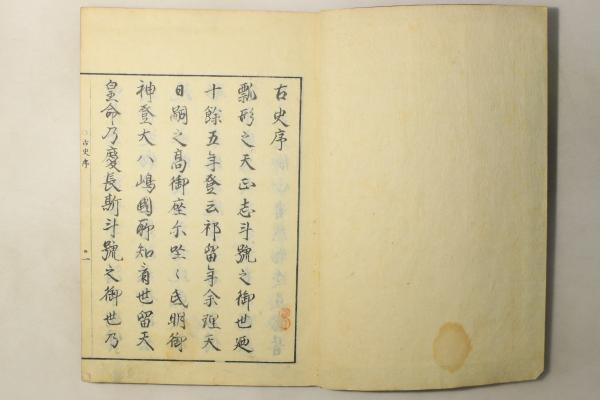 古史序
瓢形之天正志斗號之御世廼
十餘五年登云祁留年余理天
日嗣之髙御座尓坐〻氐明御
神登大八嶋國聊知看世留天
皇命乃慶長斯斗號之御世乃
古史序
一